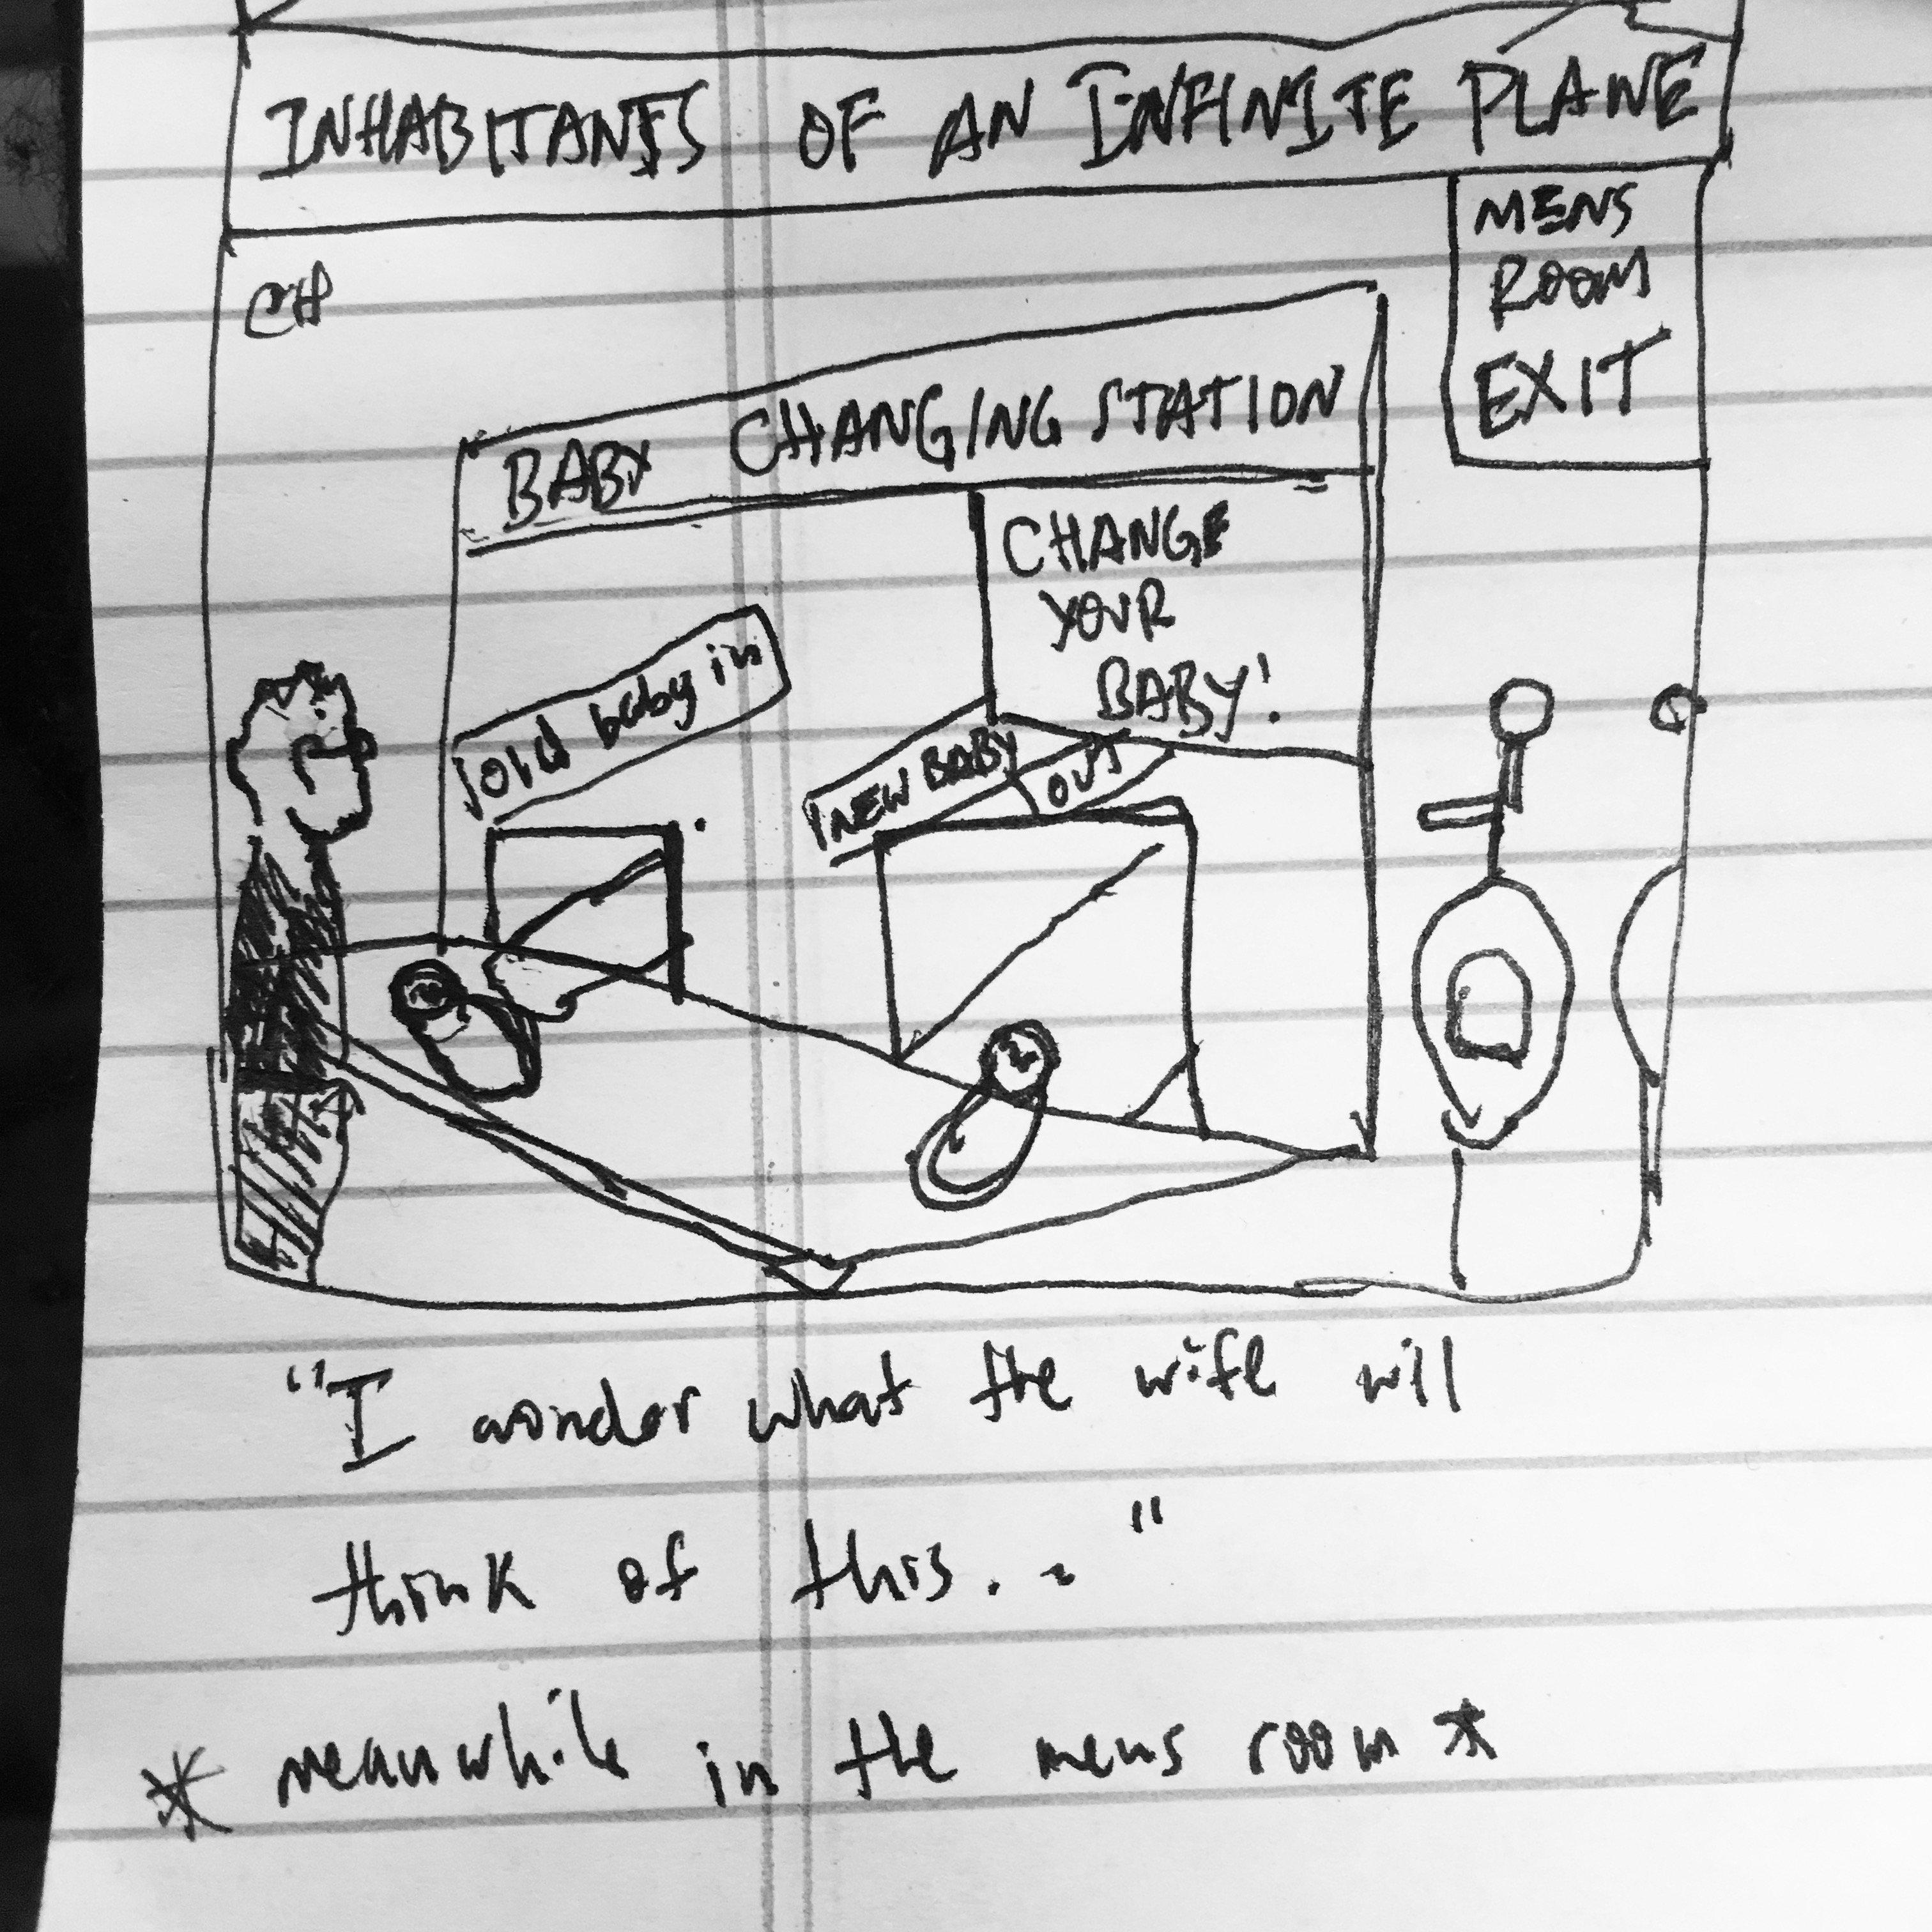 INHABITANTS OF AN INFINITE PLANE
CH
MENS
ROOM
EXIT
BABY CHANGING STATION
CHANGE
YOUR
BABY!
old baby in
NEW BABY
OUT
"I wonder what the wife will
think of this..."
* meanwhile in the mens room *